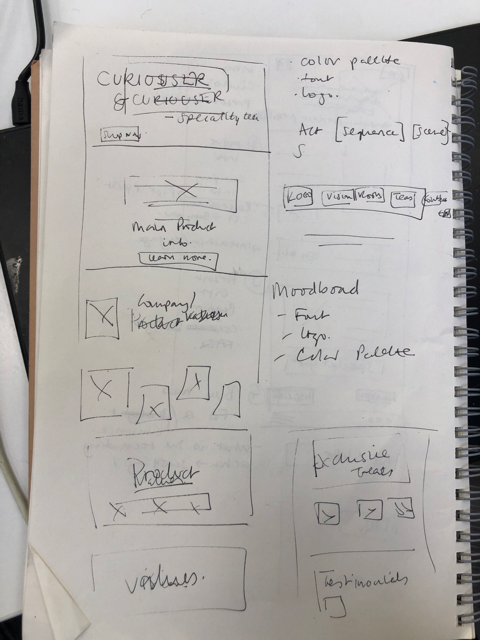 CURIOUSER
& CURIOUSER
- Speciality tea
Shop Now
main Product
info.
learn more.
Company/
Product
Product
Values.
color palette
font
Logo.
Act [sequence] [scene]
S
Teas
Moodboard
- Font
- Logo.
- Color Palette
Exclusive
Teas
Testimonials